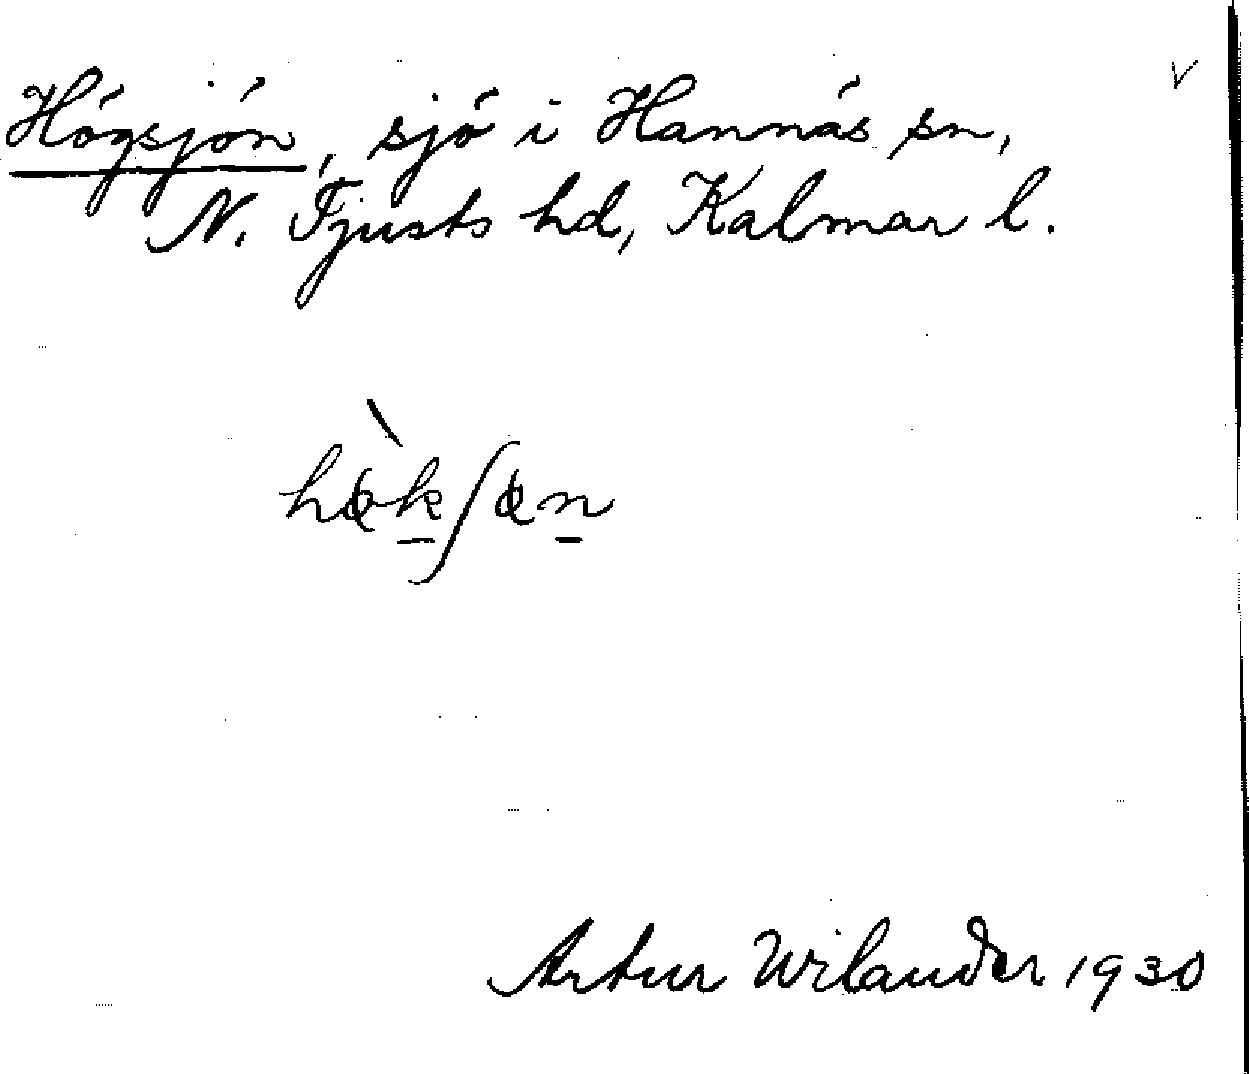 Högsjön, sjö i Hannäs sn,
N. Tjusts hd, Kalmar l.
Artur Wilander 1930